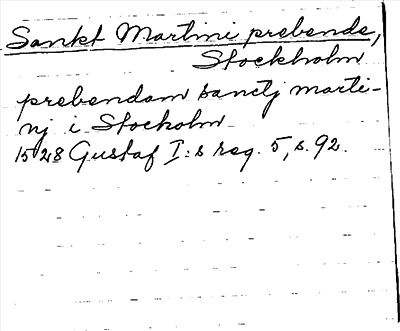 Sankt Martini prebende,
Stockholm
prebendam sanctj marti-
nj i Stocholm
1528 Gustaf I:s reg. 5, s. 92.